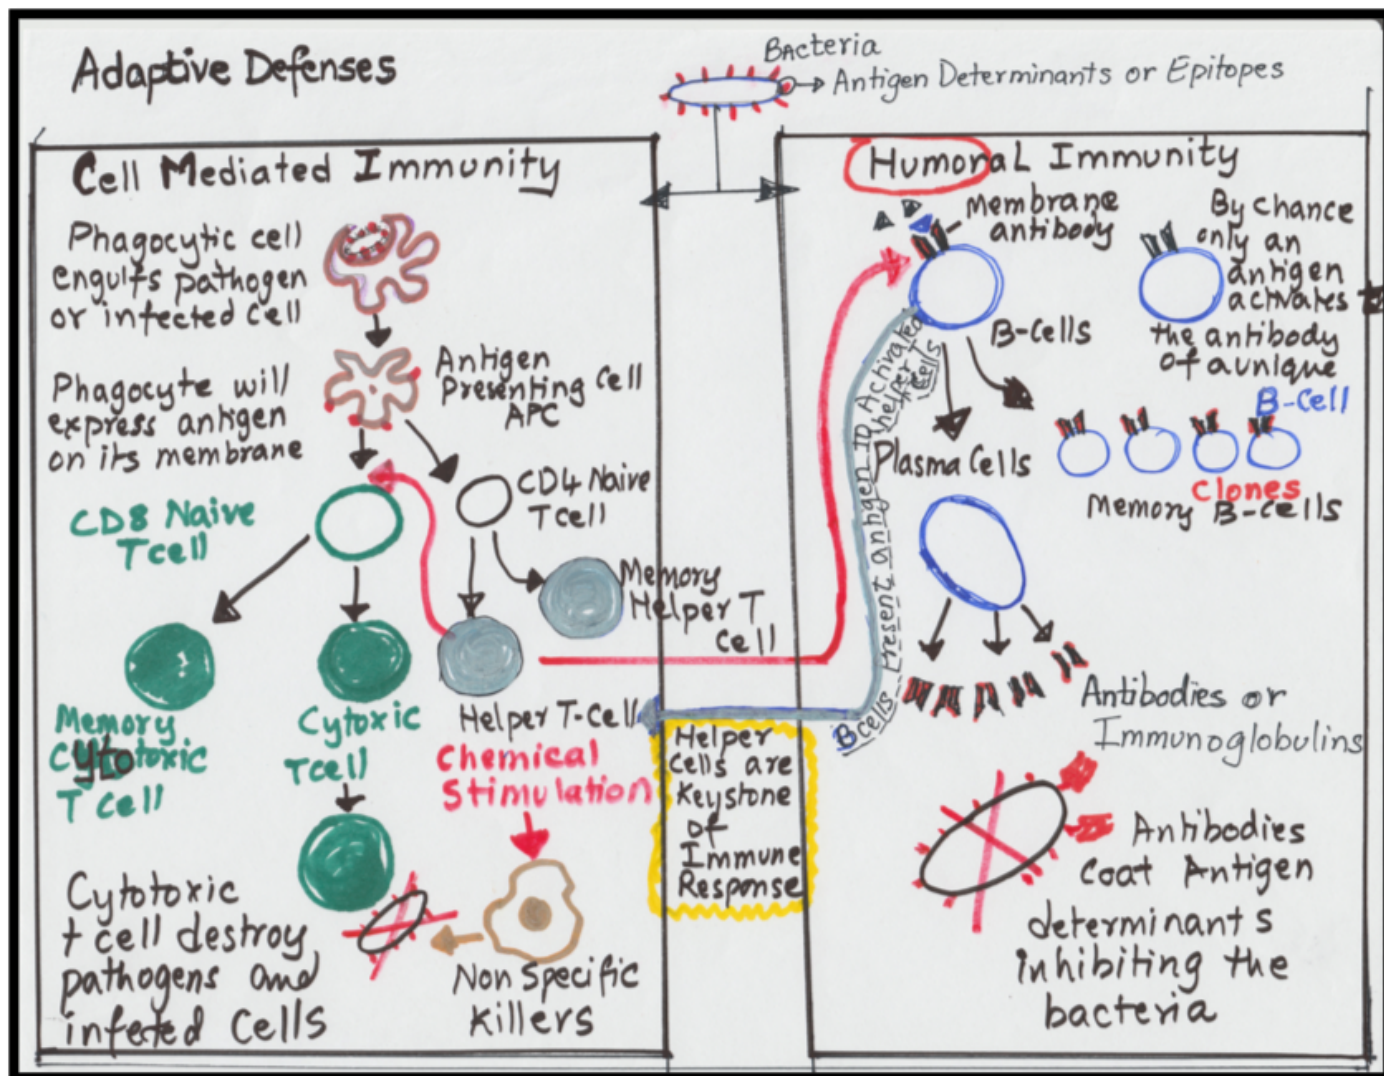 Adaptive Defenses
Bacteria
Antigen Determinants or Epitopes
Cell Mediated Immunity
Phagocytic cell
engulfs pathogen
or infected cell
Phagocyte will
express antigen
on its membrane
Antigen
Presenting Cell
APC
CD8 Naive
Tcell
CD4 Naive
Tcell
Memory
Helper T
Cell
Memory
Cytotoxic
T cell
Cytoxic
Tcell
Helper T-Cell
Chemical
Stimulation
Cytotoxic
t cell destroy
pathogens and
infeted Cells
Non Specific
Killers
Helper
Cells are
Keystone
of
Immune
Response
Humoral Immunity
Membrane
antibody
By Chance
only an
antigen
activates
the antibody
of a unique
B-Cell
B-Cells
Plasma Cells
Clones
Memory B-cells
B cells Present antigen to Activated
helper T
Cells
Antibodies or
Immunoglobulins
Antibodies
Coat Antigen
determinants
inhibiting the
bacteria